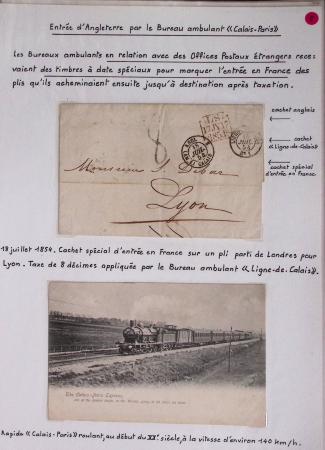 Entrée d'Angleterre par le Bureau ambulant «Calais-Paris»
Les Bureaux ambulants en relation avec des Offices Postaux Etrangers rece-
vaient des timbres à date spéciaux pour marquer l'entrée en France des
plis qu'ils acheminaient ensuite jusqu'à destination après taxation.
cachet anglais
cachet
«Ligne-de-Calais»
cachet spécial
d'entrée en France
Monsieur
Lyon
18 juillet 1854. Cachet spécial d'entrée en France sur un pli parti de Londres pour
Lyon. Taxe de 8 décimes appliquée par le Bureau ambulant «Ligne-de-Calais».
The Calais-Paris Express,
Rapide «Calais-Paris» roulant, au début du XXe siècle, à la vitesse d'environ 140 km/h.